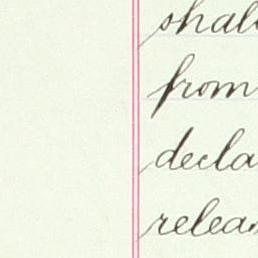 shal
from
decla
relea